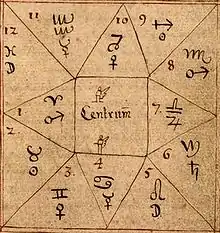 11 10 9
♒ ♐
12 ☿ ♀ ☉
♓ ☽ 8 ♏
1 ♈ ♂ Centrum 7 ♎ ♃
2 4 6
♉ ☉ 3 ♍ ♄
♊ ♀ ♋ ☿ 5 ♌ ☽